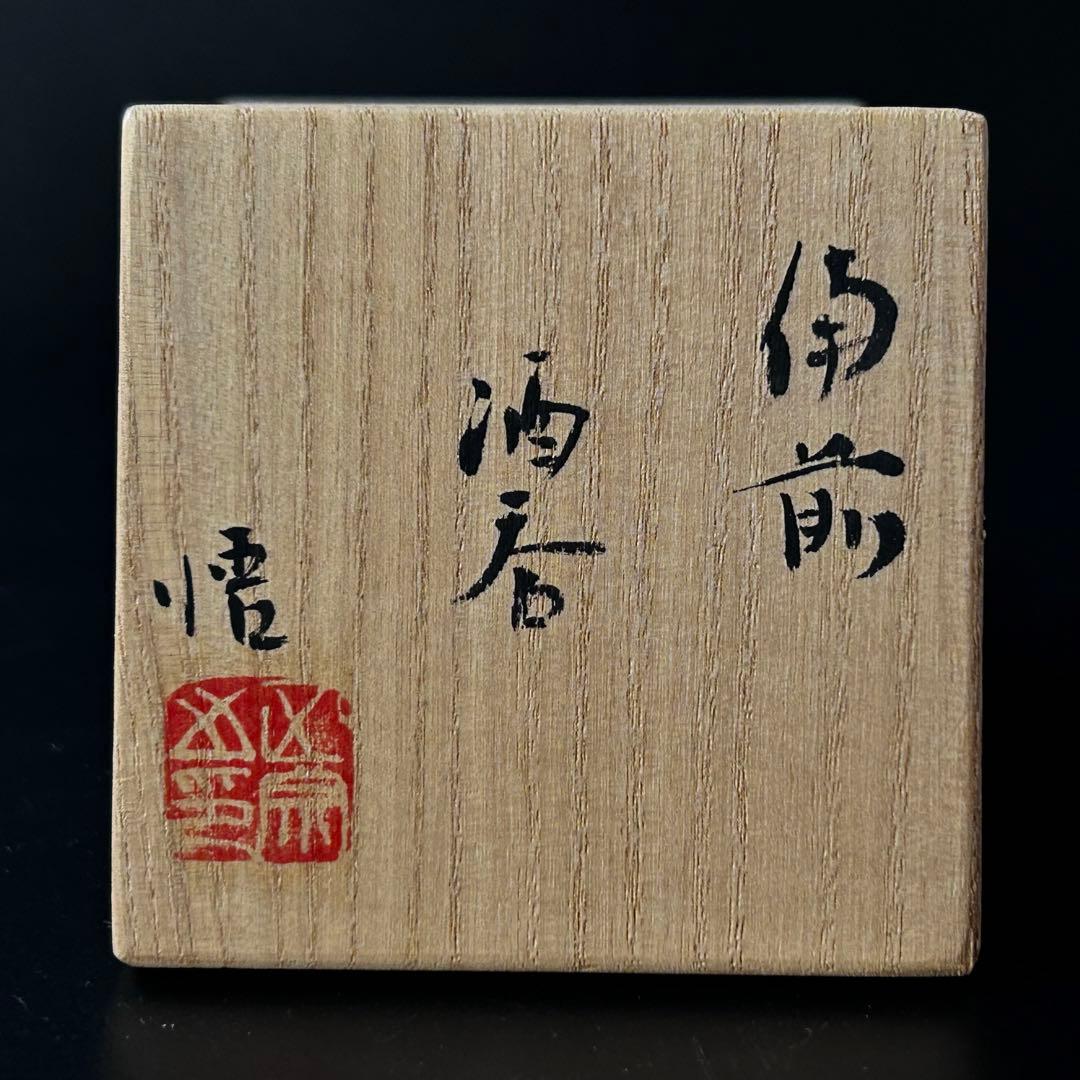 備前
酒呑
悟